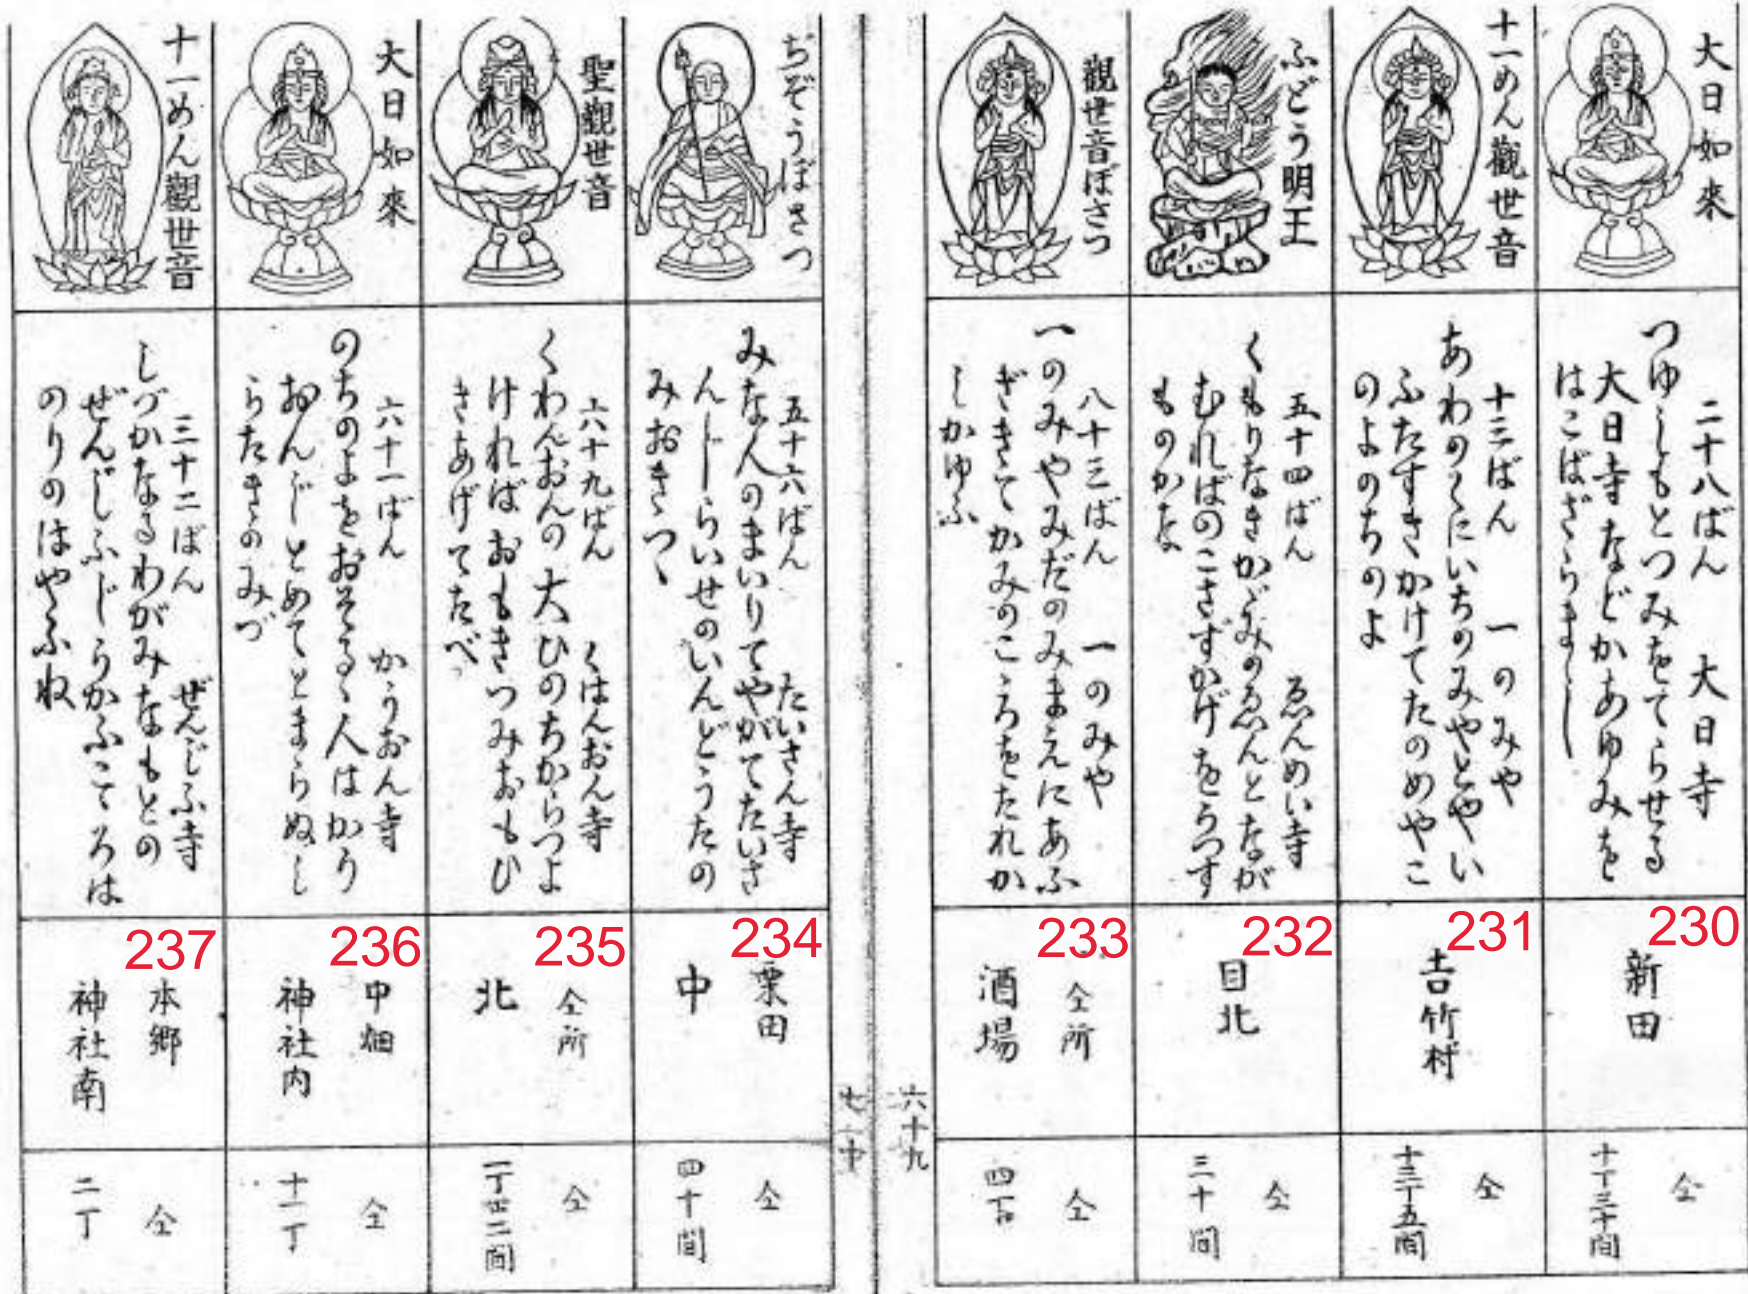 大日如來
二十八ばん 大日寺
つゆしもとつみをてらせる
大日寺などかあゆみを
はこばざらまし
230
新田
仝
十丁三十間
十一めん觀世音
十三ばん 一のみや
あわのくにいちのみやとやい
ふたすきかけてたのめやこ
のよのちのよ
231
吉竹村
仝
十三丁五間
ふどう明王
五十四ばん ゑんめい寺
くもりなきかゞみのゑんとなが
むればのこさずかげをうつす
ものかな
232
目北
仝
三十間
觀世音ぼさつ
八十三ばん 一のみや
一のみやみだのみまえにあふ
ぎきてかみのこゝろをたれか
しかゆふ
233
仝所
酒場
仝
六十九
ぢぞうぼさつ
五十六ばん たいさん寺
みな人のまいりてやがてたいさ
んじーらいせのいんどうたの
みおきつゝ
234
栗田
中
仝
四十間
聖觀世音
六十九ばん くはんおん寺
くわんおんの大ひのちからつよ
ければおもきつみおもひ
きあげてたべ
235
仝所
北
仝
一丁廿二間
大日如來
六十一ばん かうおん寺
のちのよをおそるゝ人はかう
おんじーとめてとまらぬし
らたきのみづ
236
中畑
神社内
仝
十一丁
十一めん觀世音
三十二ばん ぜんじふ寺
しづかなるわがみなもとの
ぜんじふじうかふこころは
のりのはやふね
237
本郷
神社南
仝
二丁